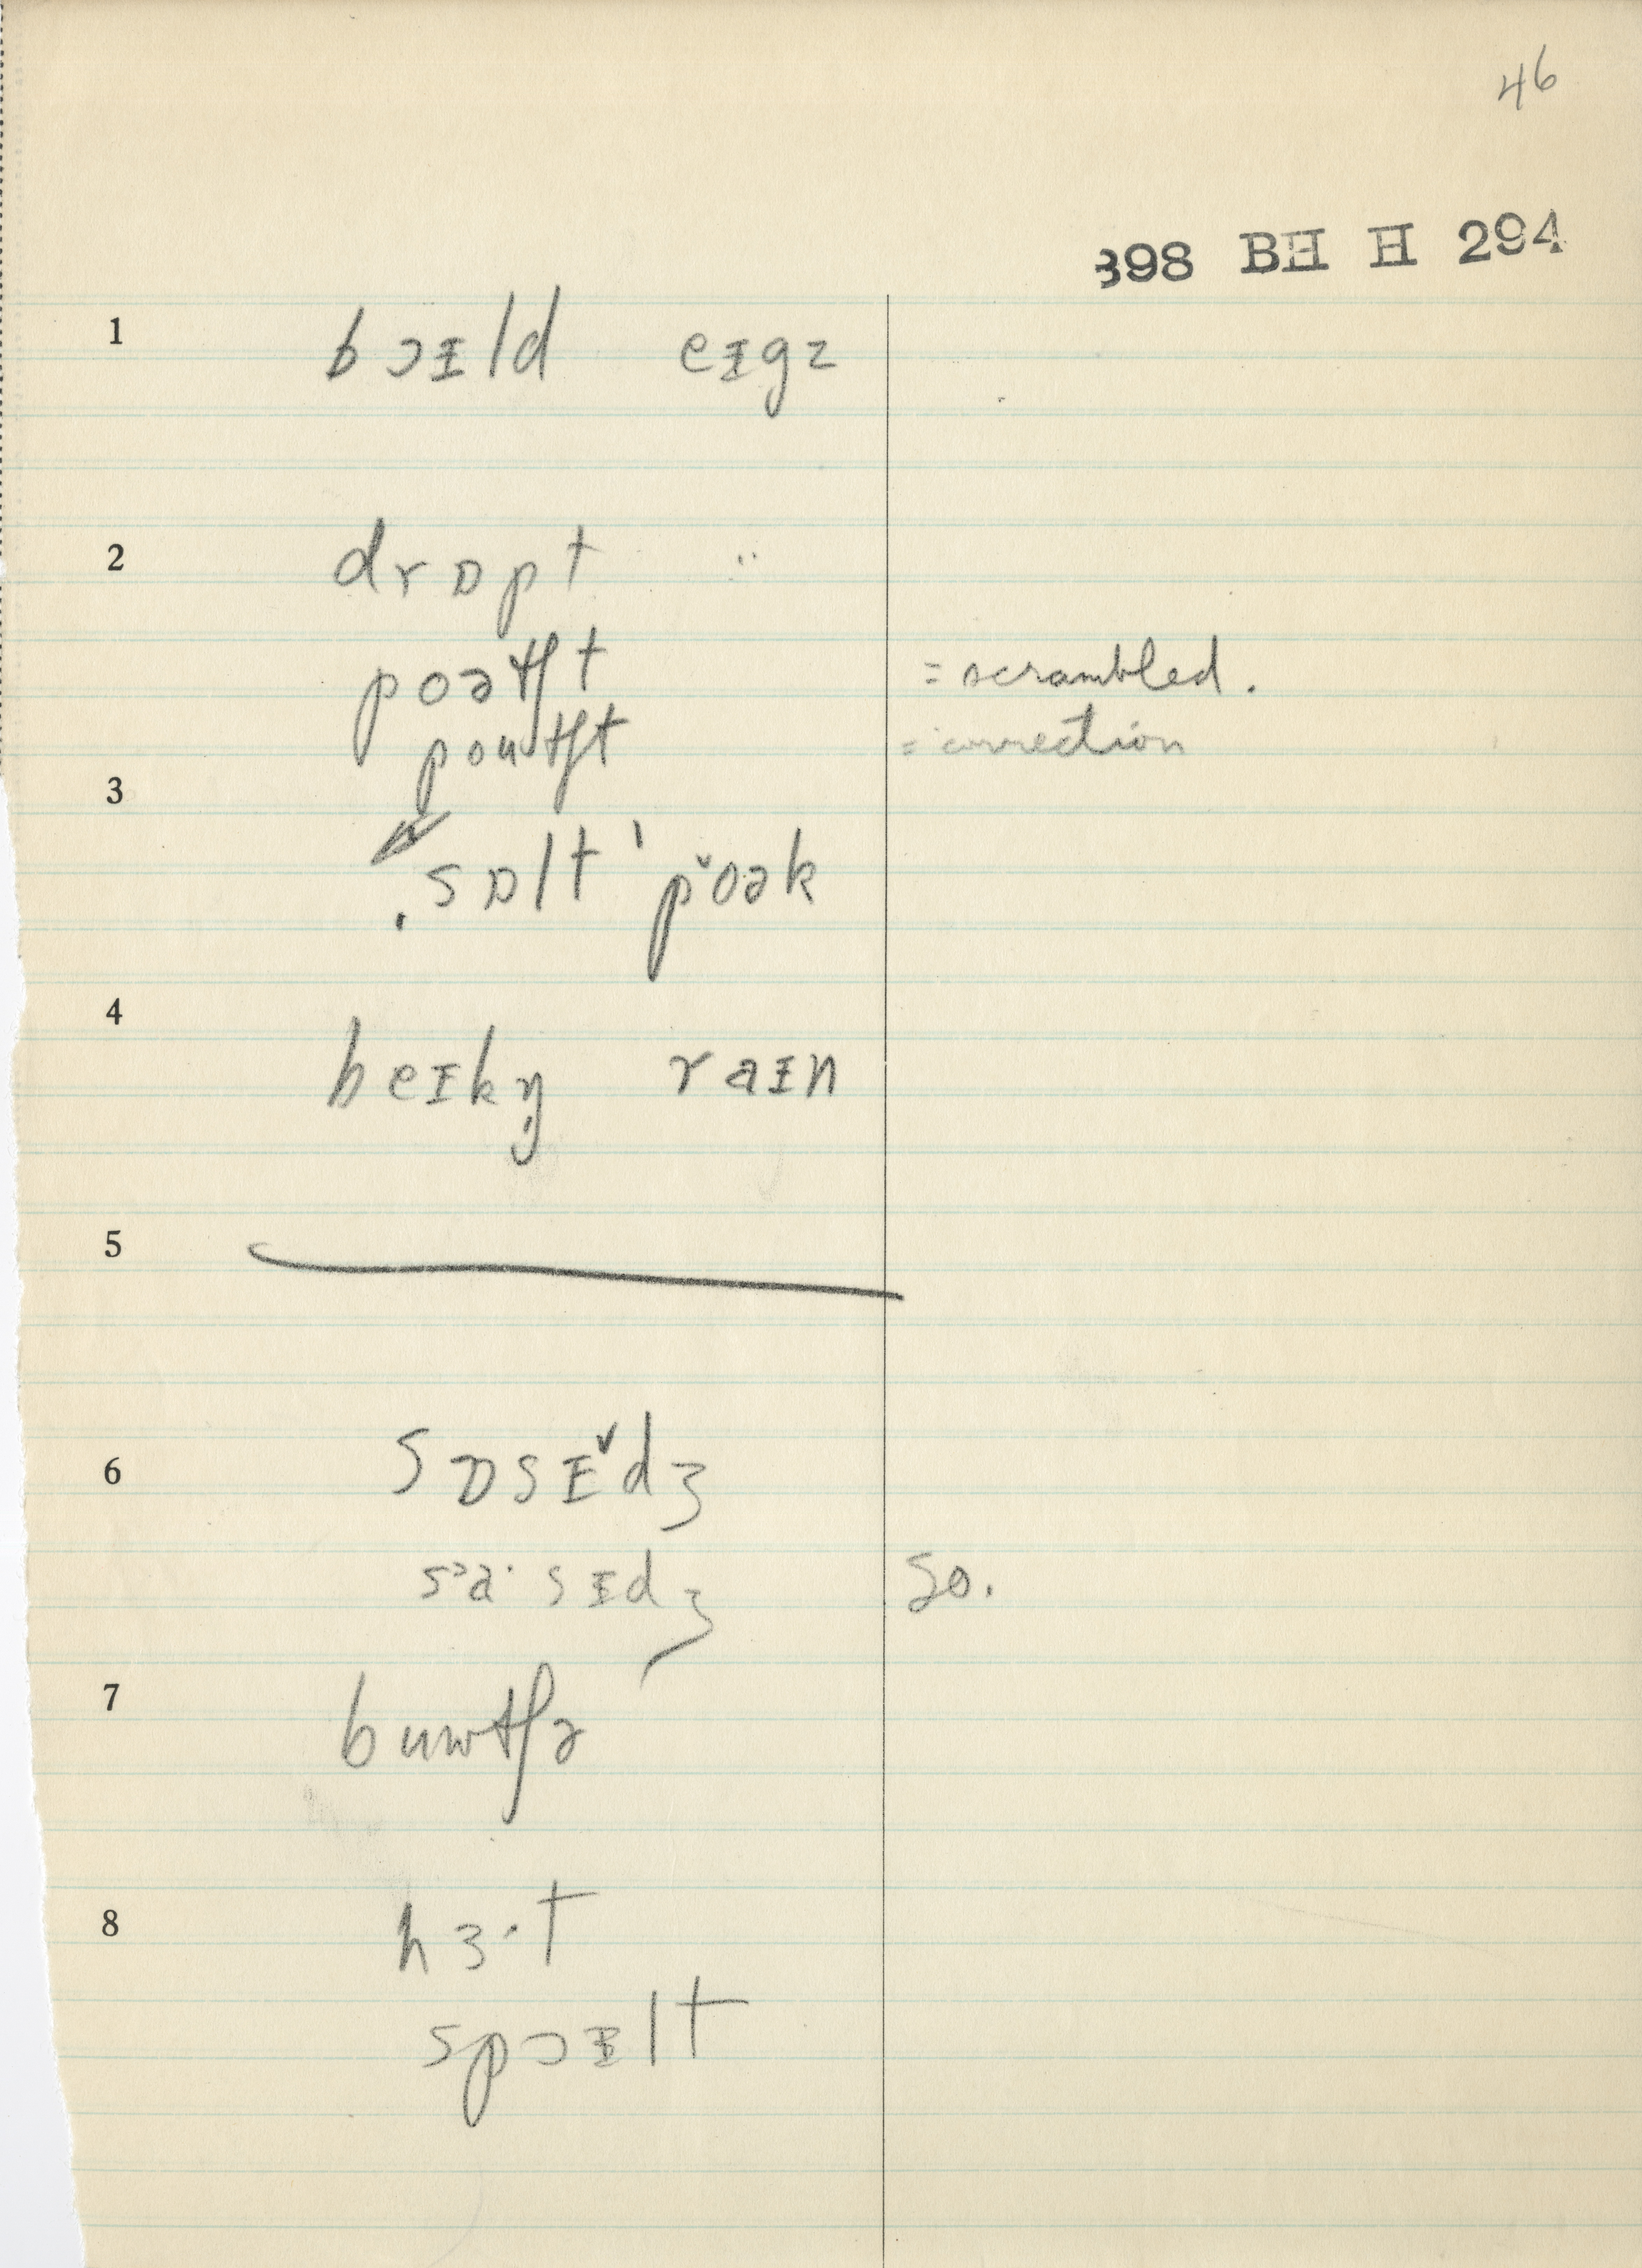 46
398 BH H 294
1 bɔɪld eɪgz
2 drɒpt ..
poətʃt = scrambled.
poutʃt = correction
3
sɒlt ' pˇoək
4 beɪkŋ̩ raɪn
5
6 sɒsɪˇdʒ
sᵓa· sɪdʒ so.
7 buwtʃə
8 hɜ·t
spɔɪlt